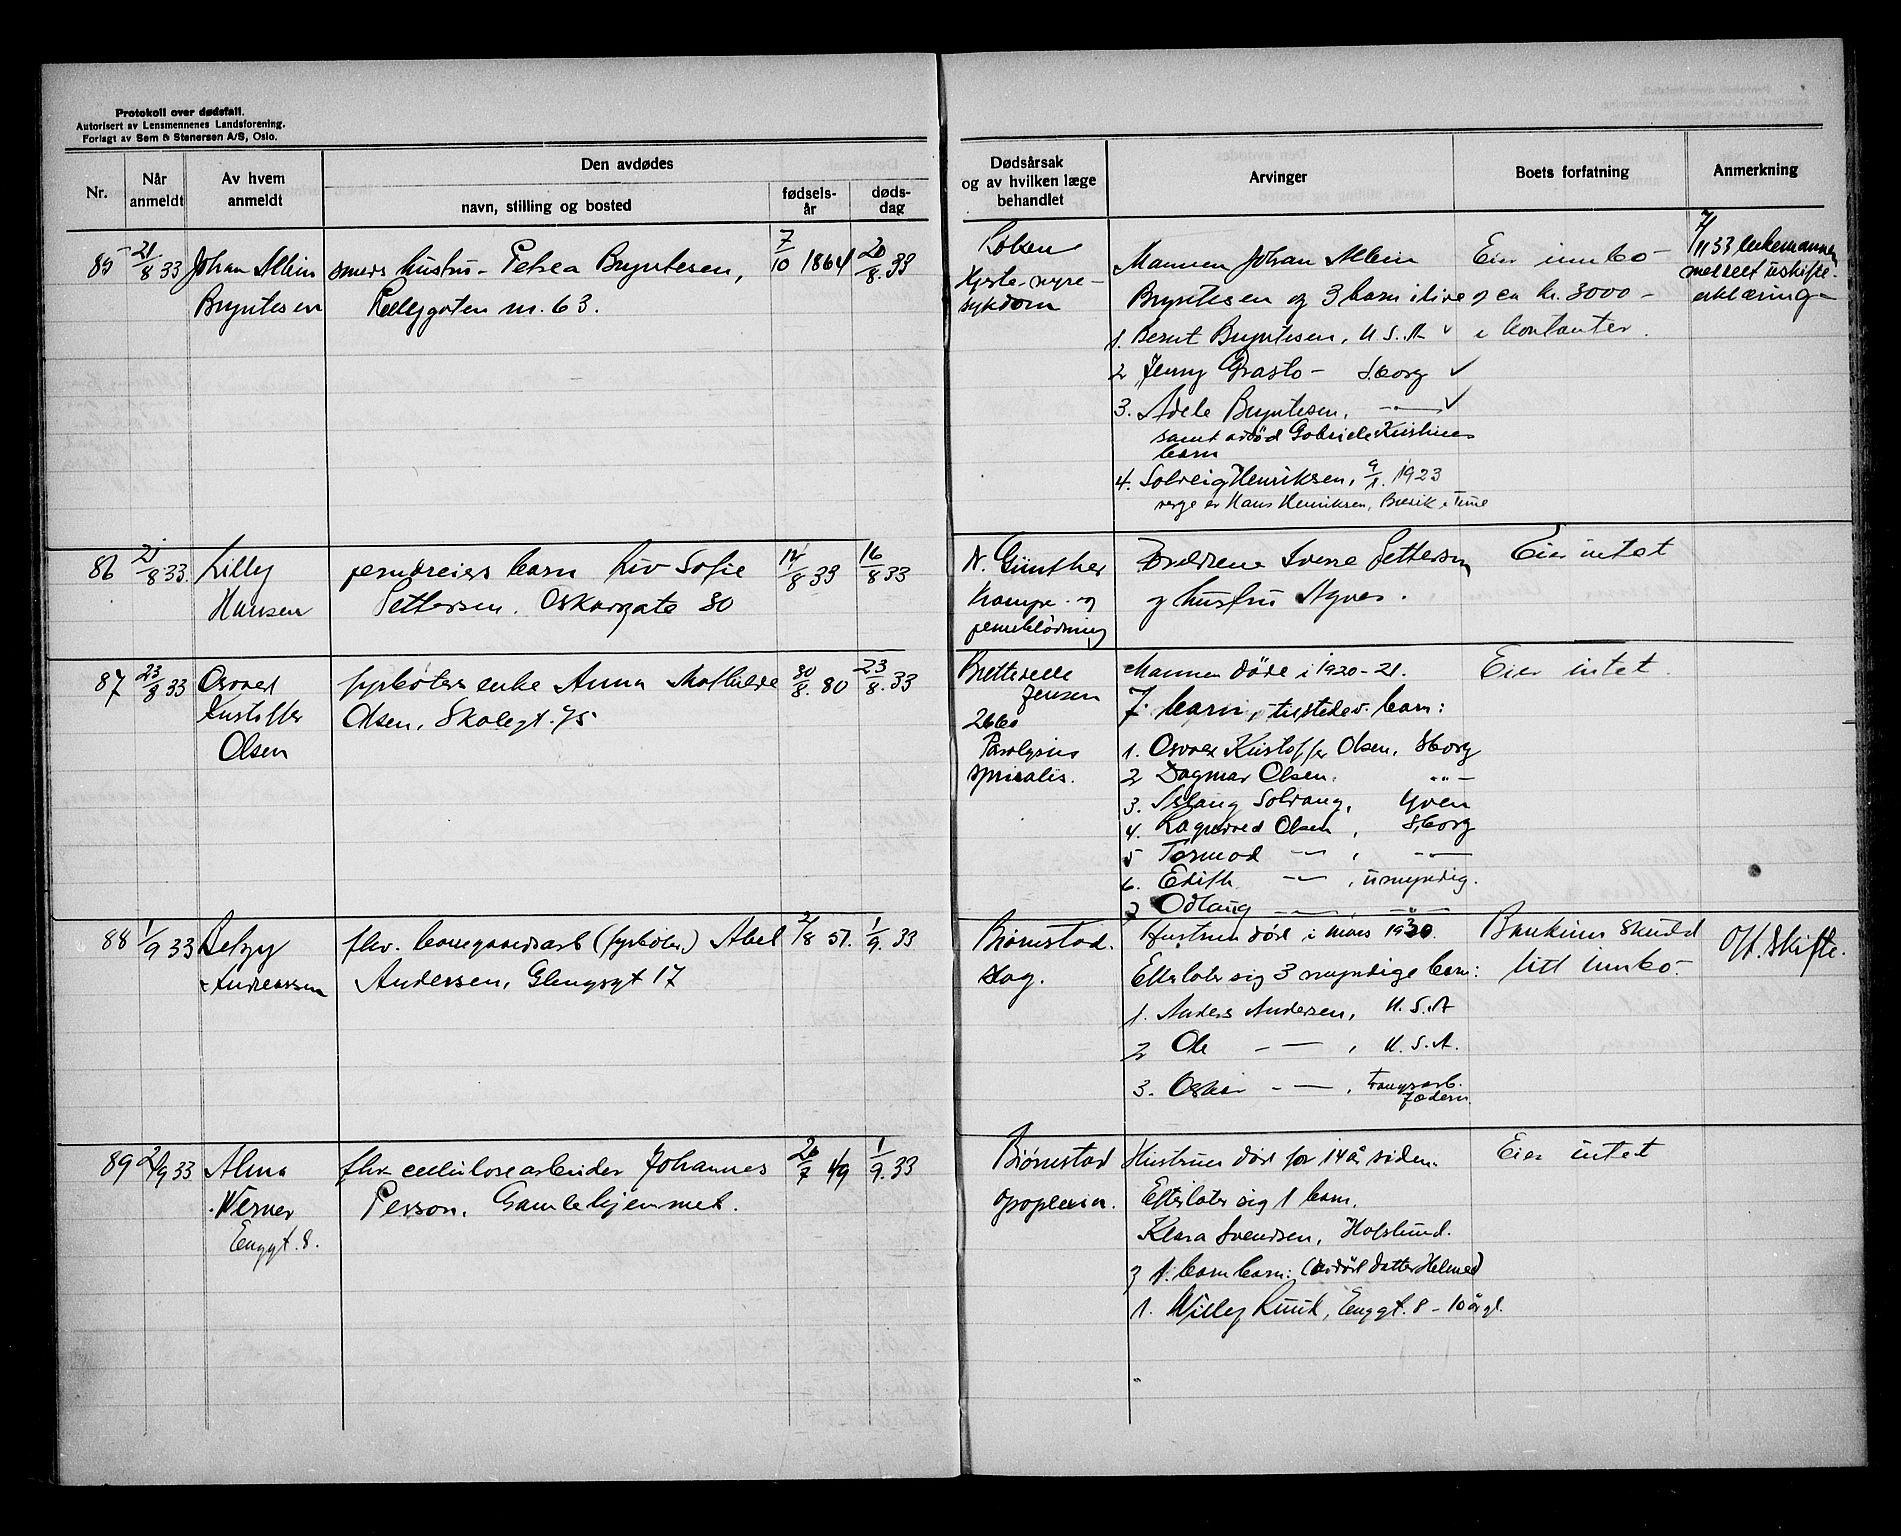 Protokoll over dødsfall.
Autorisert av Lensmennenes Landsforening.
Forlagt av Sem & Stenersen A/S, Oslo.
Nr.
Når anmeldt
Av hvem anmeldt
Den avdødes
navn, stilling og bosted
fødsels-år
døds-dag
Dødsårsak
og av hvilken læge
behandlet
Arvinger
Boets forfatning
Anmerkning
85 21/8 33 Johan Albin
Bryntesen
smeds hustru - Petrea Bryntesen,
gaten nr. 63.
7/10 1864 20/8. 33
Hjerte-nyre-
sykdom
Mannen Johan Albin
Bryntesen og 3 barn i live
1. Bernt Bryntesen, U.S.A
2 Jenny Grasto - S.borg
3. Adele Bryntesen, -"-
samt avdød Gabriele Kristines
barn
4. Solveig Henriksen, 9/1. 1923
verge er Hans Henriksen, i Tune
Eier innbo -
og ca kr. 3000 -
i kontanter.
7/11 33 enkemannen
meddelt uskifte-
erklæring
86 21/8 33. Lilly
Hansen
barn Liv Sofie
Pettersen. Oskarsgate 80
12/8 33 16/8 33
N. Günther
Krampe - og
Foreldrene Sverre Pettersen
og hustru Agnes.
Eier intet
87 23/8 33 Osvald
Kristoffer
Olsen
fyrbøters enke Anna Mathilde
Olsen, Skolegt. 75
30/8. 80 23/8. 33
Bretteville
Jensen
2660
Paralysis
spinalis.
Mannen døde i 1920-21.
7 barn, tilstedev. barn:
1. Osvald Kristoffer Olsen, Sborg
2 Dagmar Olsen. " -
3. Aslaug Solvang, Yven
4. Ragnvald Olsen, Sborg
5 Tormod -"- , -"-
6. Edith -"- , umyndig.
7 Odlaug -"- "
Eier intet.
88 1/9 33
Andreassen
fhv. (fyrbøter.) Abel
Andersen, Glengsgt 17
2/8 57. 1/9. 33
Bjørnstad.
Slag.
Hustruen død i mars 1930.
Efterlater sig 3 myndige barn:
1. Anders Andersen, U.S.A
2 Ole -"- , U.S.A.
3. Oskar -"- ,
Bankinnskudd
litt innbo.
Off. Skifte.
89 2/9 33 Alma
Werner
Enggt. 8.
fhv. cellulosearbeider Johannes
Persson, Gamlehjemmet.
26/7 49 1/9. 33
Bjørnstad
apoplexia.
Hustruen død for 14 år siden.
Efterlater sig 1 barn,
Klara Svendsen, Hafslund.
og 1. barnbarn: (avdød datter
1. Willy Enggt. 8 - 10 år gl.
Eier intet